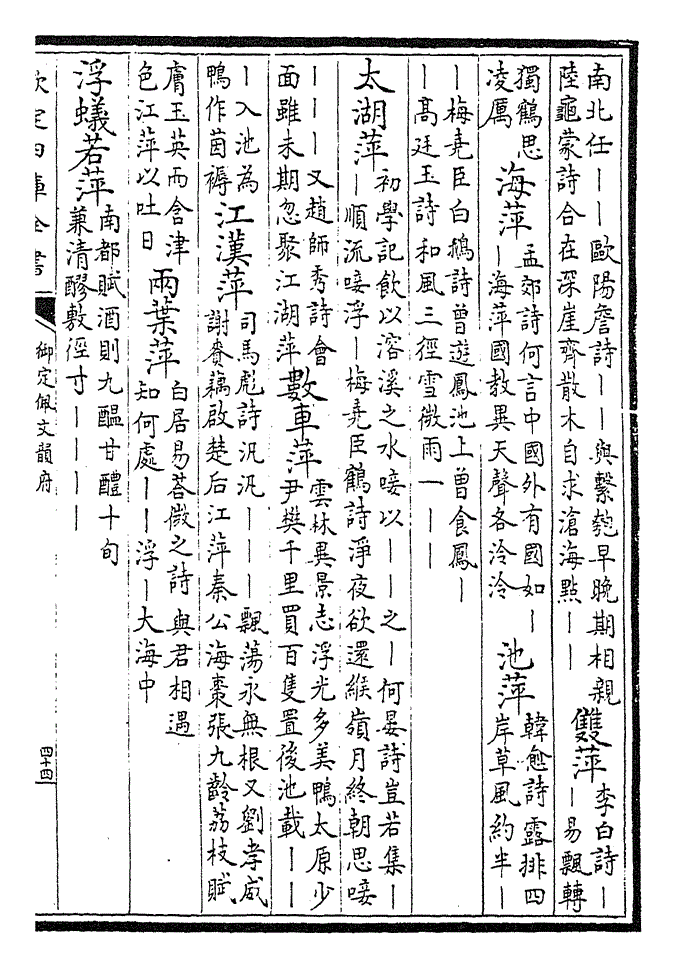 南北任——歐陽詹詩——與繫匏早晚期相親
陸龜蒙詩合在深崖齊散木自求滄海點——
雙萍
李白詩—
—易飄轉
獨鶴思
凌厲
海萍
孟郊詩何言中國外有國如—
—海萍國教異天聲各泠泠
池萍
韓愈詩露排四
岸草風約半—
—梅堯臣白鵝詩曾遊鳳池上曾食鳳—
—高廷玉詩和風三徑雪微雨一———
太湖萍
初學記飲以溶溪之水唼以——之—何晏詩豈若集—
—順流唼浮—梅堯臣鶴詩淨夜欲還緱嶺月終朝思唼
———又趙師秀詩會
面雖未期忽聚江湖萍
數車萍
雲林異景志浮光多美鴨太原少
尹樊千里買百隻置後池載——
—入池為
鴨作茵褥
江漢萍
司馬彪詩汎汎———飄蕩永無根又劉孝威
謝賚藕啟楚后江萍秦公海棗張九齡荔枝賦
膚玉英而含津
色江萍以吐日
兩葉萍
白居易荅微之詩與君相遇
知何處——浮—大海中
浮蟻若萍
南都賦酒則九醖甘醴十旬
兼清醪敷徑寸————
欽定四庫全書
御定佩文韻府
四十四